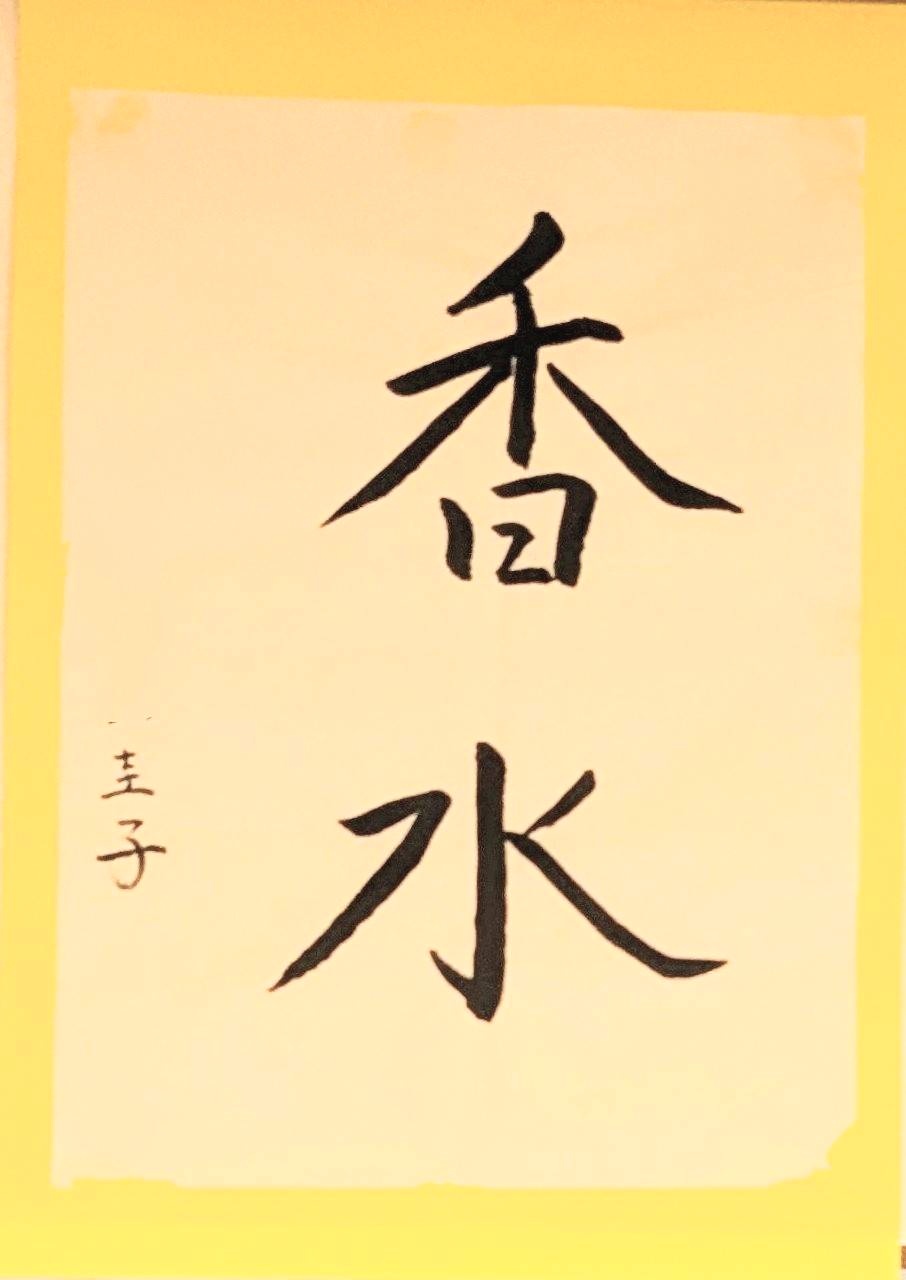 香水
圭子